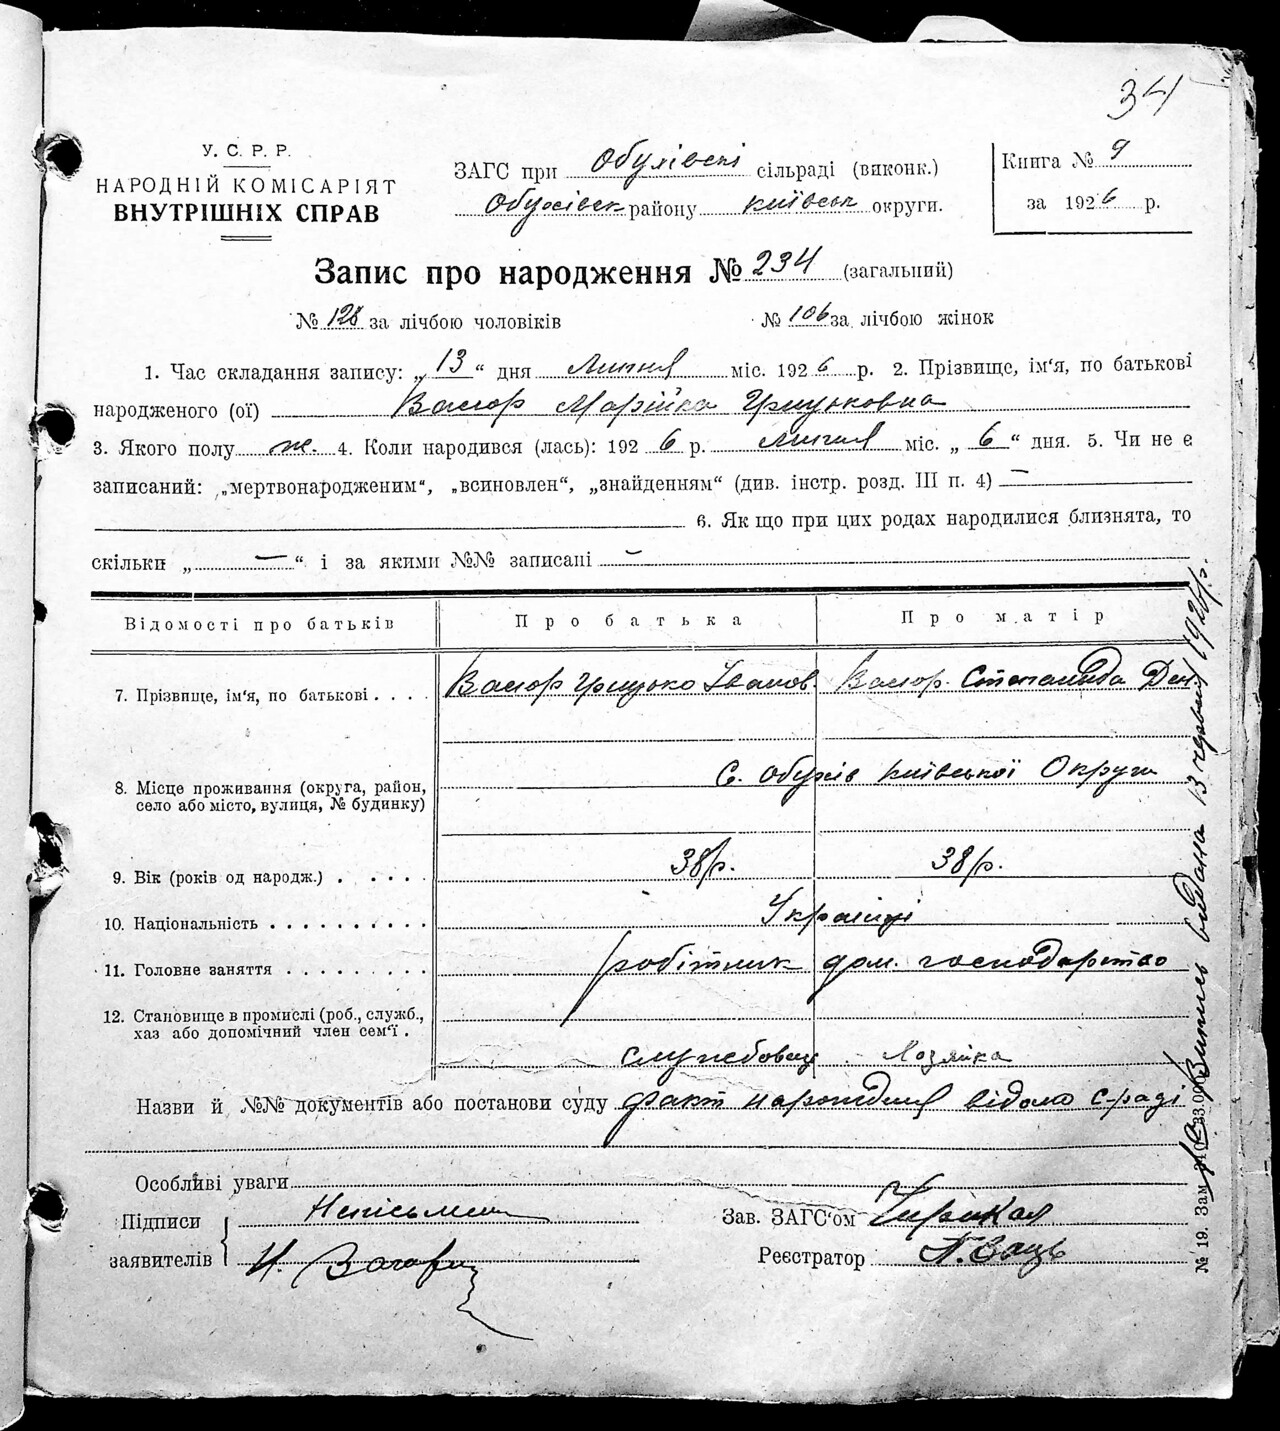 34
У. С. Р. Р.
НАРОДНІЙ КОМІСАРІЯТ
ВНУТРІШНІХ СПРАВ
ЗАГС при Обухівскі сільраді (виконк.)
Обухівськ району київськ округи.
Книга № 9
за 1926 р.
Запис про народження № 234 (загальний)
№ 128 за лічбою чоловіків № 106 за лічбою жінок
1. Час складання запису: „13“ дня Липня міс. 1926 р. 2. Прізвище, ім‘я, по батькові
народженого (ої) Марійка Грицьковна
3. Якого полу ж. 4. Коли народився (лась): 1926 р. Липня міс. „6“ дня. 5. Чи не є
записаний: „мертвонародженим“, „всиновлен“, „знайденням“ (див. інстр. розд. III п. 4) —
6. Як що при цих родах народилися близнята, то
скільки „—“ і за якими №№ записані —
Відомості про батьків Про батька Про матір
7. Прізвище, ім‘я, по батькові . . . . Грицько Іванов. Степанида Ден
8. Місце проживання (округа, район,
село або місто, вулиця, № будинку)
С. Обухів київської Округи
9. Вік (років од народж.) . . . . . 38 р. 38 р.
10. Національність . . . . . . . . . . Українці
11. Головне заняття . . . . . . . . . робітник дом. господарство
12. Становище в промислі (роб., служб.,
хаз або допомічний член сем‘ї .
службовец Хозяйка
Назви й №№ документів або постанови суду факт народження відомо с-раді
Особливі уваги
Підписи заявителів
Неписьмен
И.
Зав. ЗАГС‘ом
Реєстратор
№ 19. Зам.
Випись видана 13 червня 1926 р.